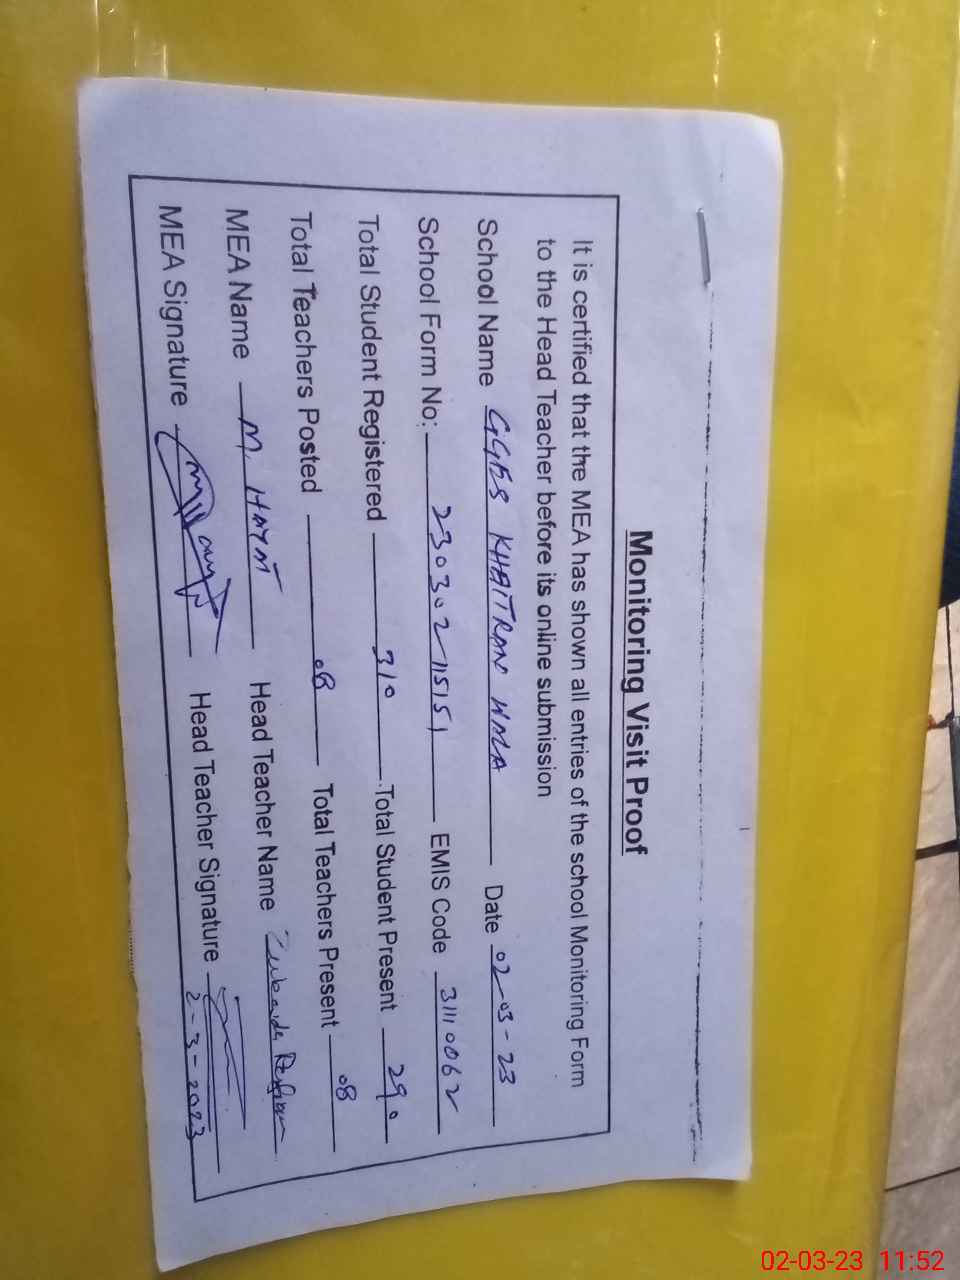 Monitoring Visit Proof
It is certified that the MEA has shown all entries of the school Monitoring Form
to the Head Teacher before its online submission
School Name GGES KHAITRAN WALA Date 02-03-23
School Form No: 230302115151 EMIS Code 31110062
Total Student Registered 310 Total Student Present 290
Total Teachers Posted 08 Total Teachers Present 08
MEA Name M. Head Teacher Name
MEA Signature Head Teacher Signature
2-3-2023
02-03-23 11:52